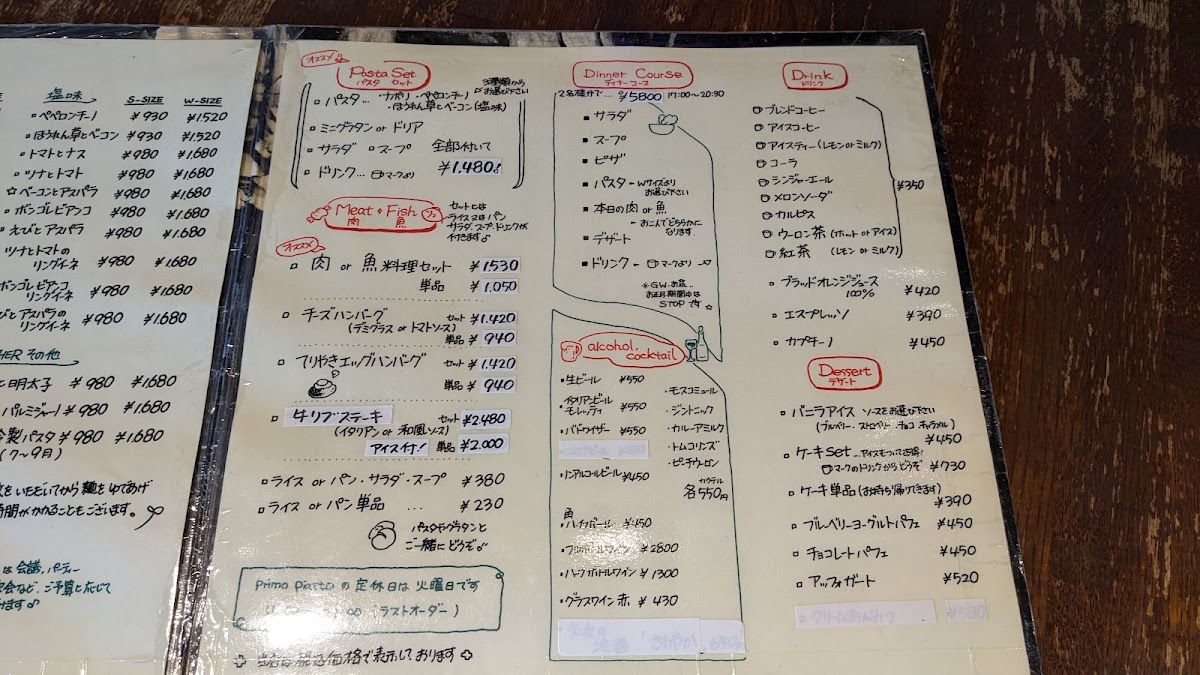 塩味 S-SIZE W-SIZE
ペペロンチーノ ¥930 ¥1.520
ほうれん草とベーコン ¥930 ¥1.520
トマトとナス ¥980 ¥1.680
ツナとトマト ¥980 ¥1.680
☆ベーコンとアスパラ ¥980 ¥1.680
ボンゴレビアンコ ¥980 ¥1.680
えびとアスパラ ¥980 ¥1.680
ツナとトマトの
リングイネ ¥980 ¥1.680
ボンゴレビアンコ
リングイネ ¥980 ¥1.680
びとアスパラの
リングイネ ¥980 ¥1.680
HER その他
と明太子 ¥980 ¥1.680
パルミジャーノ ¥980 ¥1.680
製パスタ ¥980 ¥1.680
(7〜9月)
をいただいてから麺をゆであげ
時間がかかることもございます。
は会議、パーティー
会など、ご予算と応じて
オススメ
Pasta Set
パスタ セット
3種類から
お選び下さい
パスタ… ナポリ・ペペロンチーノ
・ほうれん草とベーコン(塩味)
ミニグラタン or ドリア
サラダ スープ
全部付いて
ドリンク… マークより
¥1.480
Meat・Fish
肉 魚
セットとは
ライス又はパン
サラダ、スープ、ドリンクが
付きます♪
オススメ
肉 or 魚 料理セット ¥1.530
単品 ¥1.050
チーズハンバーグ セット ¥1.420
(デミグラス or トマトソース) 単品 ¥940
てりやきエッグハンバーグ セット ¥1.420
単品 ¥940
牛リブステーキ セット ¥2.480
(イタリアン or 和風ソース)
アイス付! 単品 ¥2.000
ライス or パン・サラダ・スープ ¥380
ライス or パン単品 … ¥230
パスタやグラタンと
ご一緒にどうぞ♪
Primo Piatto の定休日は火曜日です
(ラストオーダー)
当店は税込価格で表示しております
Dinner Course
ディナーコース
2名様分で… ¥5800 17:00〜20:30
サラダ
スープ
ピザ
パスタ - Wサイズより
お選び下さい
本日の肉 or 魚
- おこのみでどちらかに
なります
デザート
ドリンク - マークより
※G.W.お盆…
お正月期間中は
STOPです
alcohol.
cocktail
生ビール ¥550
イタリアンビール
モレッティ ¥550
バドワイザー ¥550
ノンアルコールビール ¥450
・モスコミュール
・ジントニック
・カルーアミルク
・トムコリンズ
・ピーチウーロン
カクテル
各550円
ハイボール ¥450
フルボトルワイン ¥2800
ハーフボトルワイン ¥1300
グラスワイン 赤 ¥430
Drink
ドリンク
ブレンドコーヒー
アイスコーヒー
アイスティー(レモン or ミルク)
コーラ
ジンジャーエール
メロンソーダ
カルピス
ウーロン茶(ホット or アイス)
紅茶 (レモン or ミルク)
¥350
ブラッドオレンジジュース
100% ¥420
エスプレッソ ¥390
カプチーノ ¥450
Dessert
デザート
バニラアイス ソースをお選び下さい
(ブルーベリー・ストロベリー・チョコ・キャラメル)
¥450
ケーキSet …アイスもついてお得!
マークのドリンクからどうぞ ¥730
ケーキ単品(お持ち帰りできます)
¥390
ブルーベリーヨーグルトパフェ ¥450
チョコレートパフェ ¥450
アッフォガート ¥520
クリームあんみつ